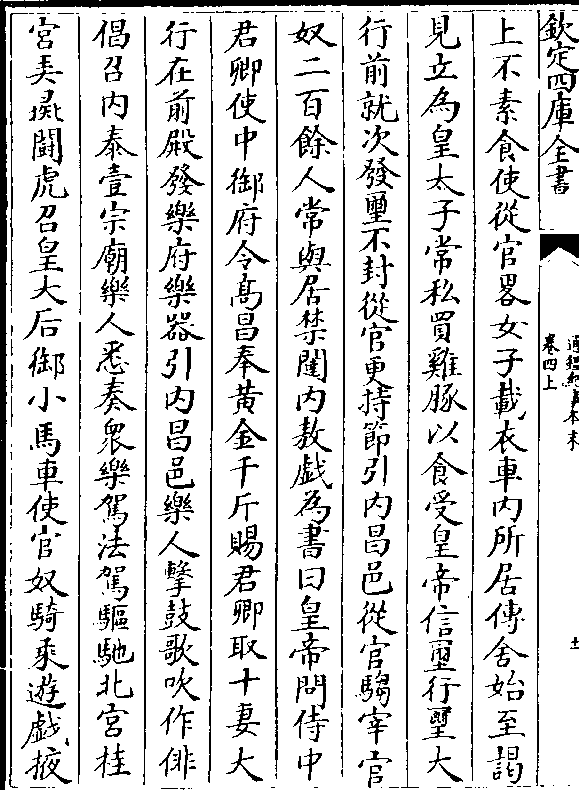 欽定四庫全書
通鑑紀事本末
卷四上
上不素食使從官畧女子載衣車內所居傳舍始至謁
見立為皇太子常私買雞豚以食受皇帝信璽行璽大
行前就次發璽不封從官更持節引內昌邑從官騶宰官
奴二百餘人常與居禁闥內敖戲為書曰皇帝問侍中
君卿使中御府令髙昌奉黃金千斤賜君卿取十妻大
行在前殿發樂府樂器引內昌邑樂人擊鼓歌吹作俳
倡召內泰壹宗廟樂人悉奏衆樂駕法駕驅馳北宮桂
宮弄彘鬭虎召皇太后御小馬車使官奴騎乗遊戲掖